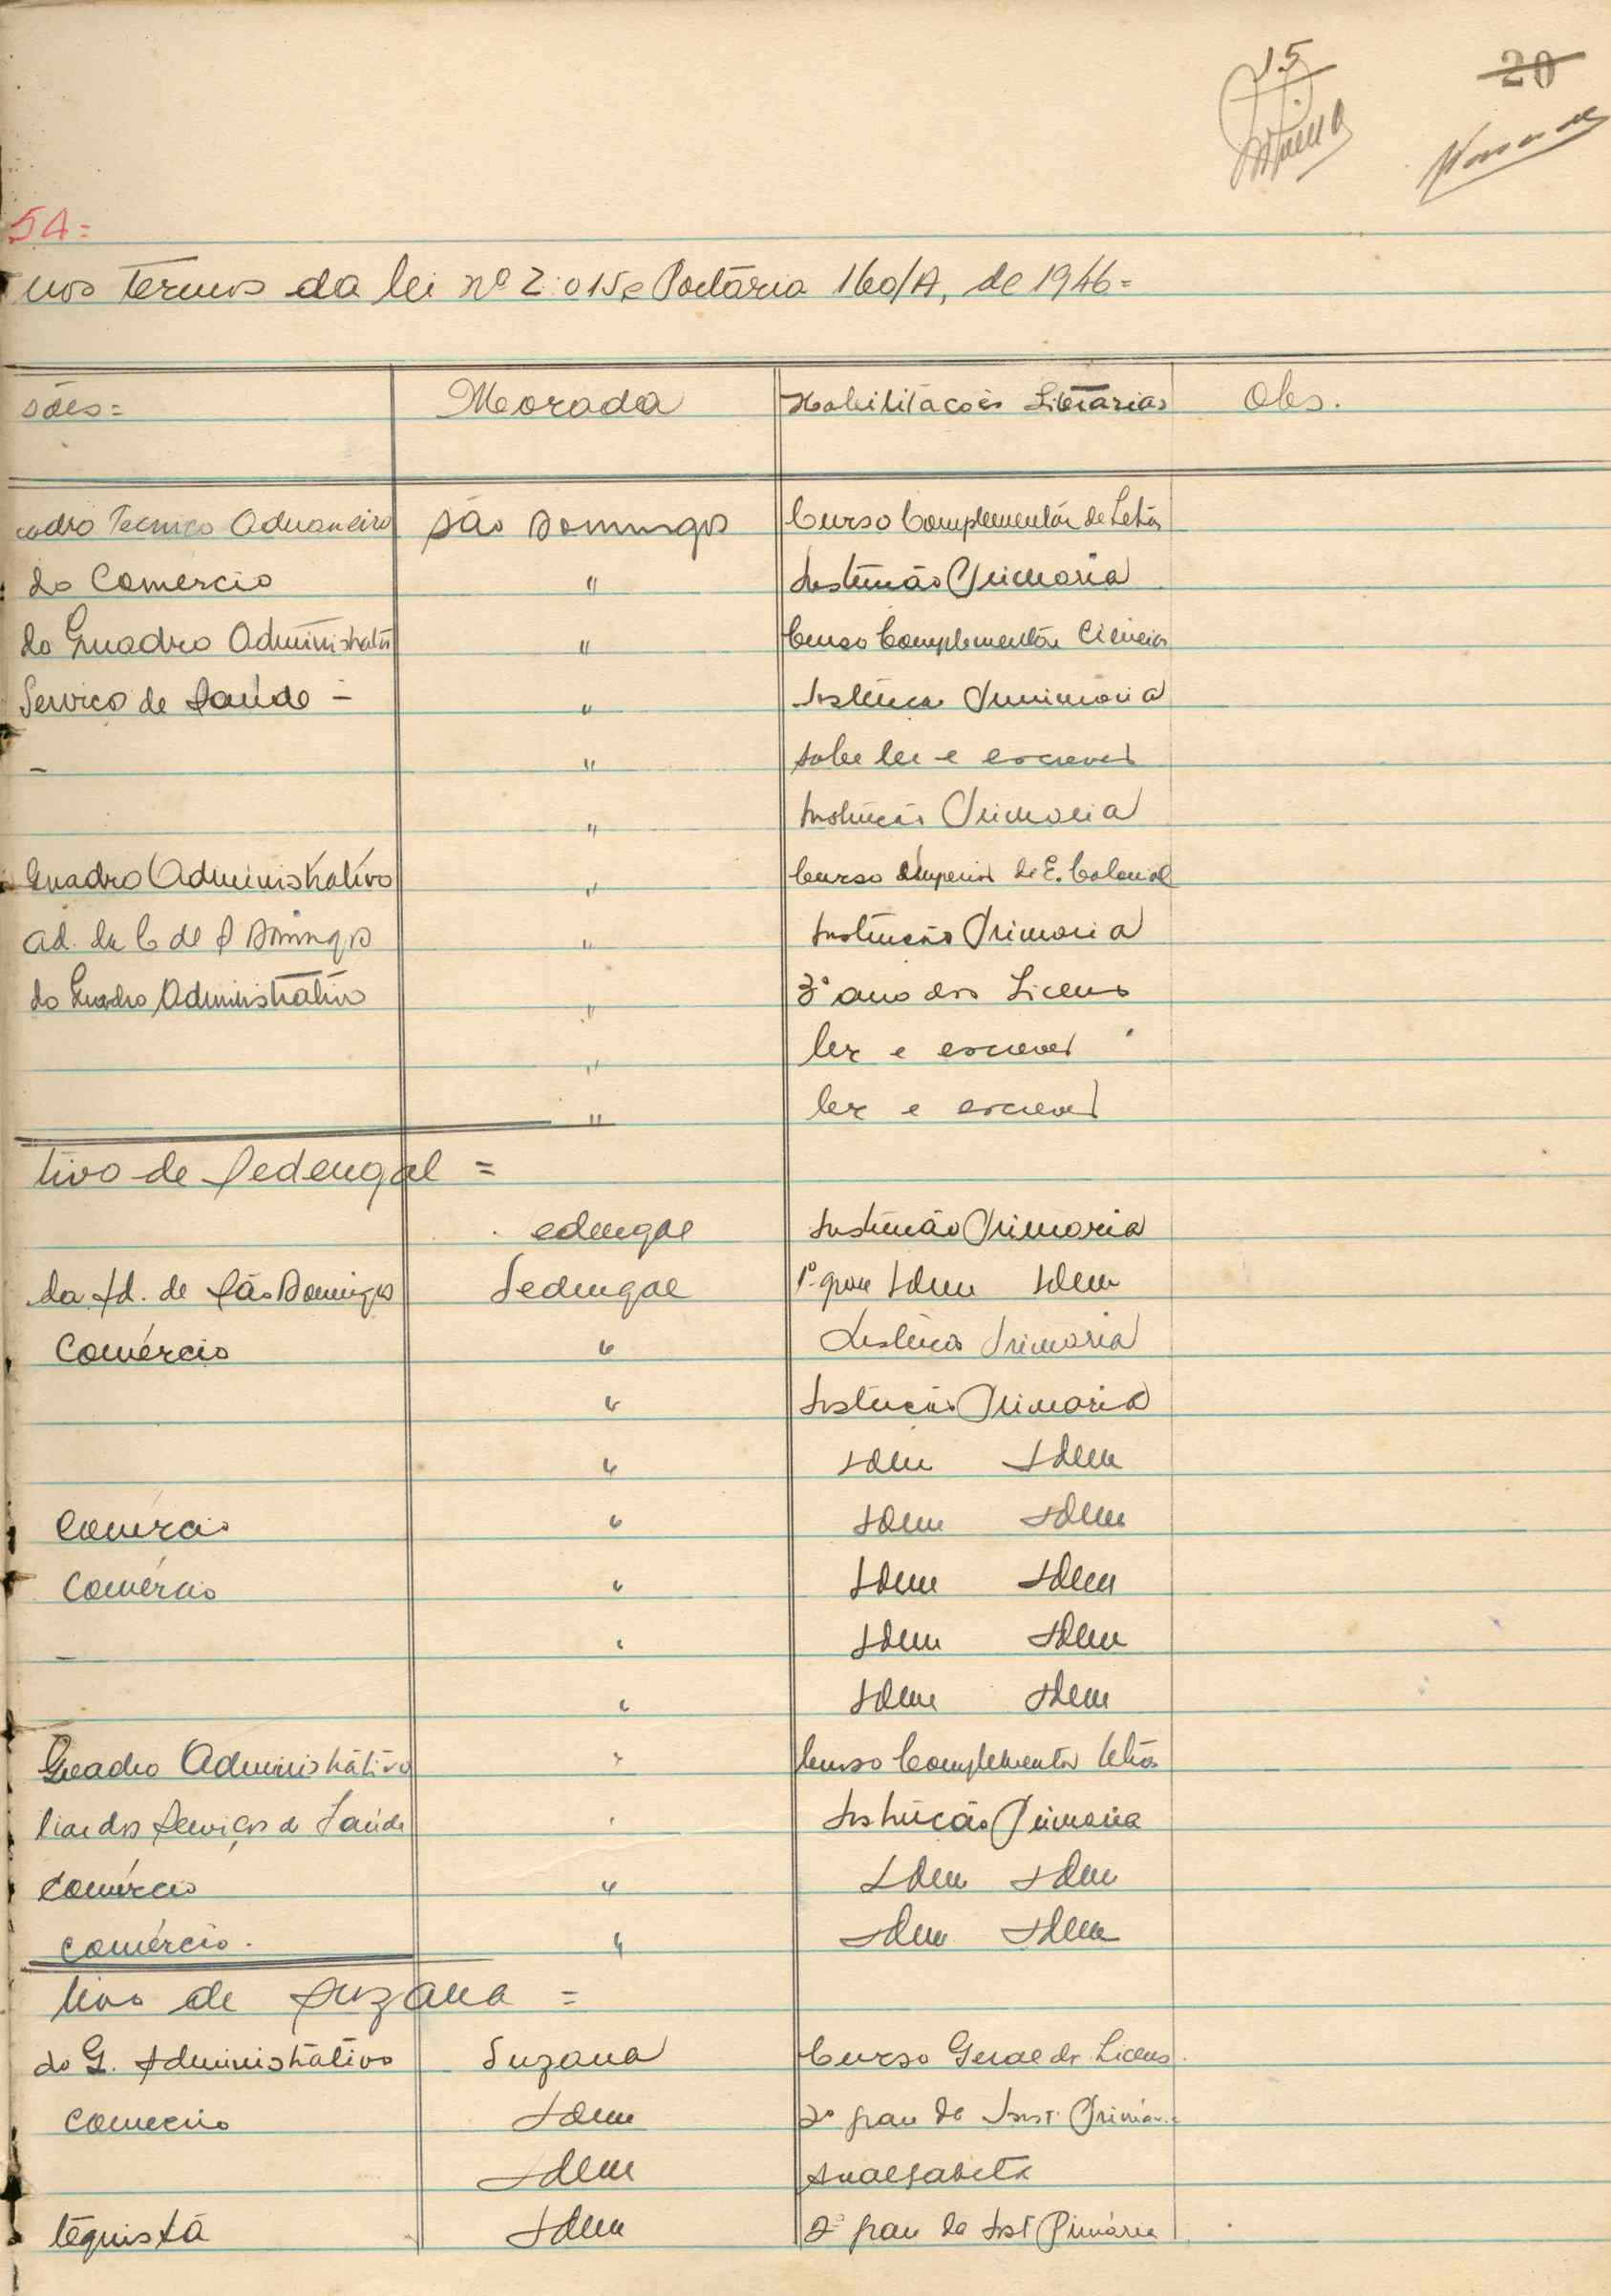 15
20
54=
nos termos da lei nº 2:015 e Portaria 160/A, de 1946=
sões= Morada Habilitacões Literarias Obs.
uadro Tecnico Aduaneiro São Domingos Curso Complementár de Letras
do Comercio " Instrução Primaria
do Quadro Administrativo " Curso Complementár Ciências
Serviço de Saúde - " Instrução Primaria
- " sabe ler e escrever
" Instrução Primaria
Quadro Administrativo " Curso Superior de E. Colonial
ad. da C de S Domingos " Instrução Primaria
do Quadro Administrativo " 3º ano dos Liceus
" ler e escrever
" ler e escrever
tivo de Sedengal =
edengal Instrução Primaria
da Ad. de São Domingos Sedengal 1º grau Idem Idem
Comércio " Instrução Primaria
" Instrução Primaria
" Idem Idem
Comércio " Idem Idem
Comércio " Idem Idem
- " Idem Idem
" Idem Idem
Quadro Administrativo " Curso Complementar Letras
liar dos Serviços de Saúde " Instrução Primaria
Comércio " Idem Idem
comércio. " Idem Idem
tivo de Suzana =
do Q. Administrativo Suzana Curso Geral dos Liceus.
Comercio Idem 2º grau de Inst. Primár.
Idem Analfabeta
tequista Idem 2º grau de Inst Primária